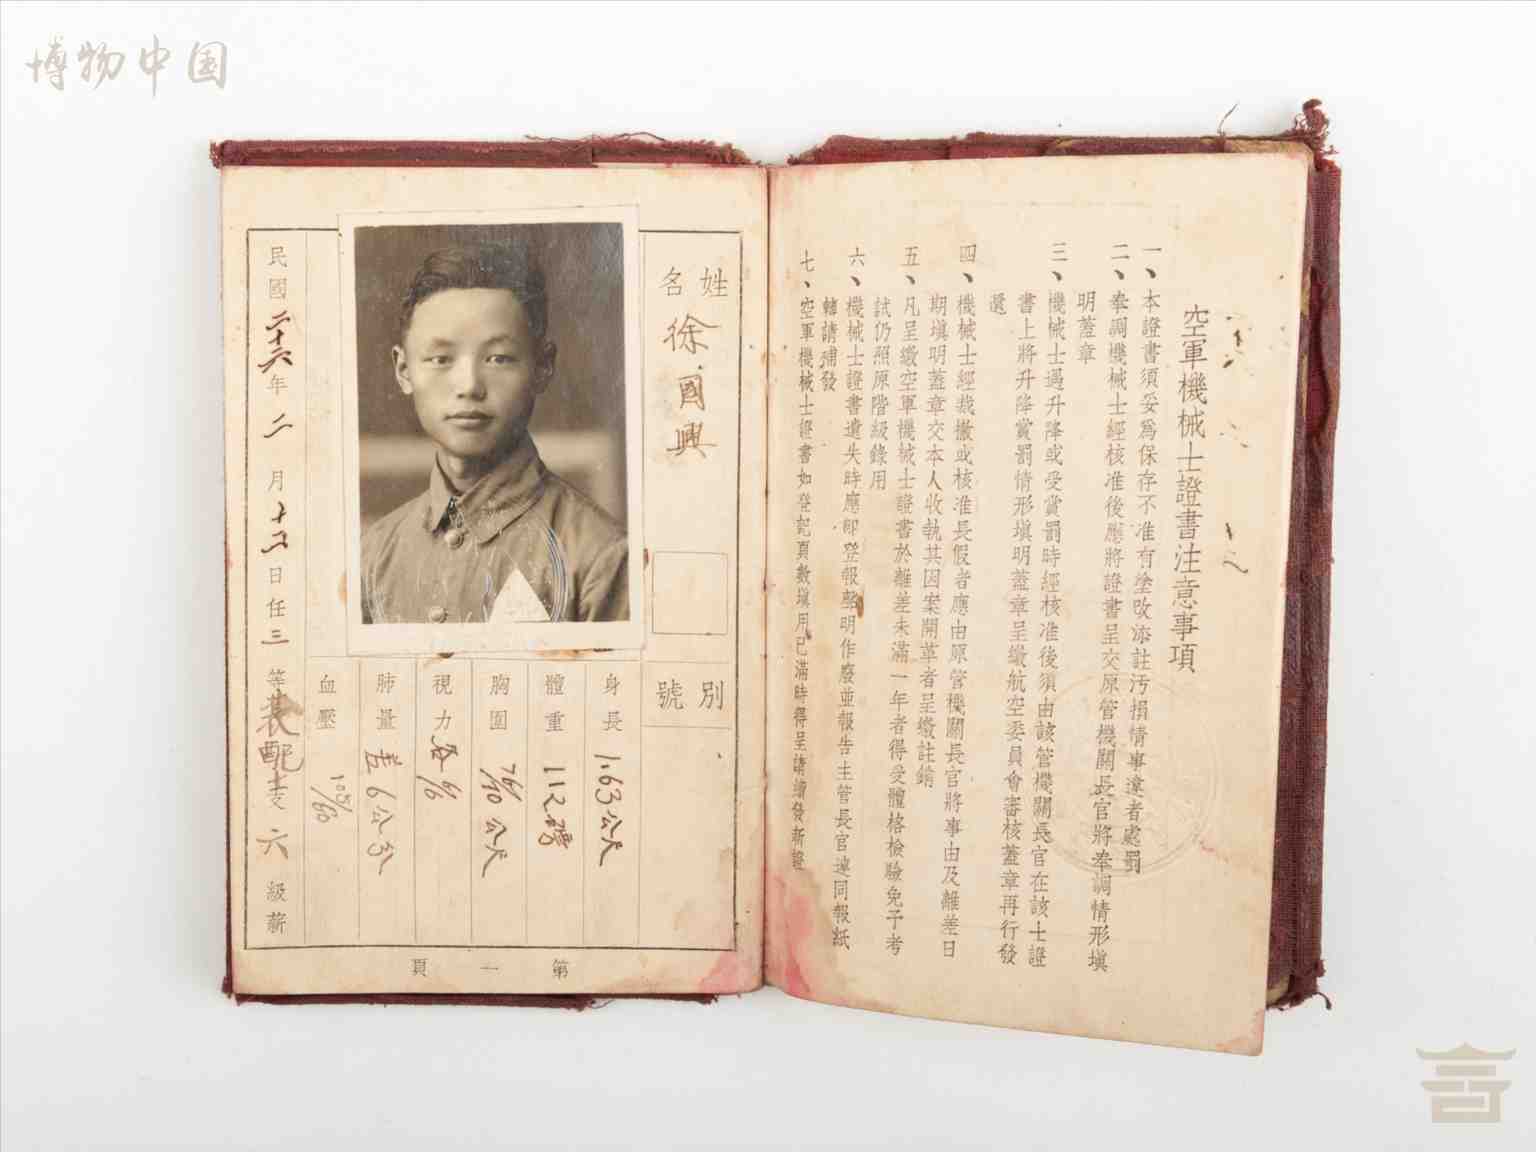 博物中国
空軍機械士證書注意事項
一、本證書須妥爲保存不准有塗改添註污損情事違者處罰
二、奉調機械士經核准後應將證書呈交原管機關長官將奉調情形塡
明蓋章
三、機械士遇升降或受賞罰時經核准後須由該管機關長官在該士證
書上將升降賞罰情形塡明蓋章呈繳航空委員會審核蓋章再行發
還
四、機械士經裁撤或核准長假者應由原管機關長官將事由及離差日
期塡明蓋章交本人收執其因案開革者呈繳註銷
五、凡呈繳空軍機械士證書於離差未滿一年者得受體格檢驗免予考
試仍照原階級錄用
六、機械士證書遺失時應卽登報聲明作廢並報告主管長官連同報紙
轉請補發
七、空軍機械士證書如登記頁數塡用已滿時得呈請續發新證
姓名
徐國興
別號
身長 1.63公尺
體重 112磅
胸圍 76/70公尺
視力 各6/6
肺量 差6公分
血壓 105/60
民國二十六年二月十五日任三等裝配士支六級薪
第一頁